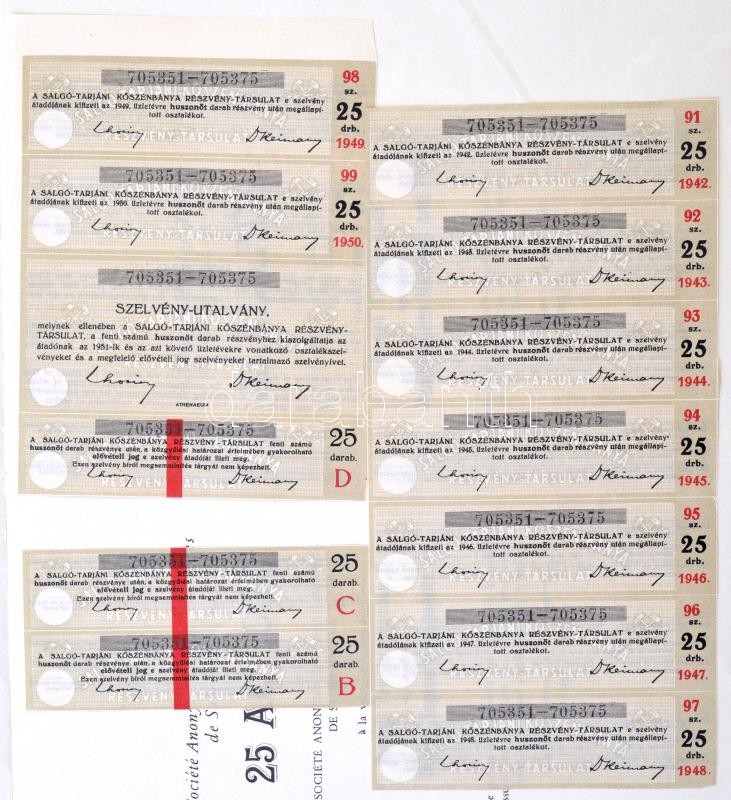 705351–705375
98
sz.
A SALGÓ-TARJÁNI KŐSZÉNBÁNYA RÉSZVÉNY-TÁRSULAT e szelvény
átadójának kifizeti az 1949. üzletévre huszonöt darab részvény után megállapí-
tott osztalékot.
25
drb.
1949.
705351–705375
99
sz.
A SALGÓ-TARJÁNI KŐSZÉNBÁNYA RÉSZVÉNY-TÁRSULAT e szelvény
átadójának kifizeti az 1950. üzletévre huszonöt darab részvény után megállapí-
tott osztalékot.
25
drb.
1950.
705351–705375
SZELVÉNY-UTALVÁNY,
melynek ellenében a SALGÓ-TARJÁNI KŐSZÉNBÁNYA RÉSZVÉNY-
TÁRSULAT, a fenti számú huszonöt darab részvényhez kiszolgáltatja az
átadónak az 1951-ik és az azt követő üzletévekre vonatkozó osztalékszel-
vényeket és a megfelelő elővételi jog szelvényeket tartalmazó szelvényívet.
ATHENAEUM
705351–705375
A SALGÓ-TARJÁNI KŐSZÉNBÁNYA RÉSZVÉNY-TÁRSULAT fenti számú
huszonöt darab részvénye után, a közgyűlési határozat értelmében gyakorolható
elővételi jog e szelvény átadóját illeti meg.
Ezen szelvény bírói megsemmisítés tárgyát nem képezheti.
25
darab.
D
705351–705375
A SALGÓ-TARJÁNI KŐSZÉNBÁNYA RÉSZVÉNY-TÁRSULAT fenti számú
huszonöt darab részvénye után, a közgyűlési határozat értelmében gyakorolható
elővételi jog e szelvény átadóját illeti meg.
Ezen szelvény bírói megsemmisítés tárgyát nem képezheti.
25
darab.
C
705351–705375
A SALGÓ-TARJÁNI KŐSZÉNBÁNYA RÉSZVÉNY-TÁRSULAT fenti számú
huszonöt darab részvénye után, a közgyűlési határozat értelmében gyakorolható
elővételi jog e szelvény átadóját illeti meg.
Ezen szelvény bírói megsemmisítés tárgyát nem képezheti.
25
darab.
B
Société Anony
de S
25 A
SOCIÉTÉ ANON
DE S
à la v
705351–705375
91
sz.
A SALGÓ-TARJÁNI KŐSZÉNBÁNYA RÉSZVÉNY-TÁRSULAT e szelvény
átadójának kifizeti az 1942. üzletévre huszonöt darab részvény után megállapí-
tott osztalékot.
25
drb.
1942.
705351–705375
92
sz.
A SALGÓ-TARJÁNI KŐSZÉNBÁNYA RÉSZVÉNY-TÁRSULAT e szelvény
átadójának kifizeti az 1943. üzletévre huszonöt darab részvény után megállapí-
tott osztalékot.
25
drb.
1943.
705351–705375
93
sz.
A SALGÓ-TARJÁNI KŐSZÉNBÁNYA RÉSZVÉNY-TÁRSULAT e szelvény
átadójának kifizeti az 1944. üzletévre huszonöt darab részvény után megállapí-
tott osztalékot.
25
drb.
1944.
705351–705375
94
sz.
A SALGÓ-TARJÁNI KŐSZÉNBÁNYA RÉSZVÉNY-TÁRSULAT e szelvény
átadójának kifizeti az 1945. üzletévre huszonöt darab részvény után megállapí-
tott osztalékot.
25
drb.
1945.
705351–705375
95
sz.
A SALGÓ-TARJÁNI KŐSZÉNBÁNYA RÉSZVÉNY-TÁRSULAT e szelvény
átadójának kifizeti az 1946. üzletévre huszonöt darab részvény után megállapí-
tott osztalékot.
25
drb.
1946.
705351–705375
96
sz.
A SALGÓ-TARJÁNI KŐSZÉNBÁNYA RÉSZVÉNY-TÁRSULAT e szelvény
átadójának kifizeti az 1947. üzletévre huszonöt darab részvény után megállapí-
tott osztalékot.
25
drb.
1947.
705351–705375
97
sz.
A SALGÓ-TARJÁNI KŐSZÉNBÁNYA RÉSZVÉNY-TÁRSULAT e szelvény
átadójának kifizeti az 1948. üzletévre huszonöt darab részvény után megállapí-
tott osztalékot.
25
drb.
1948.